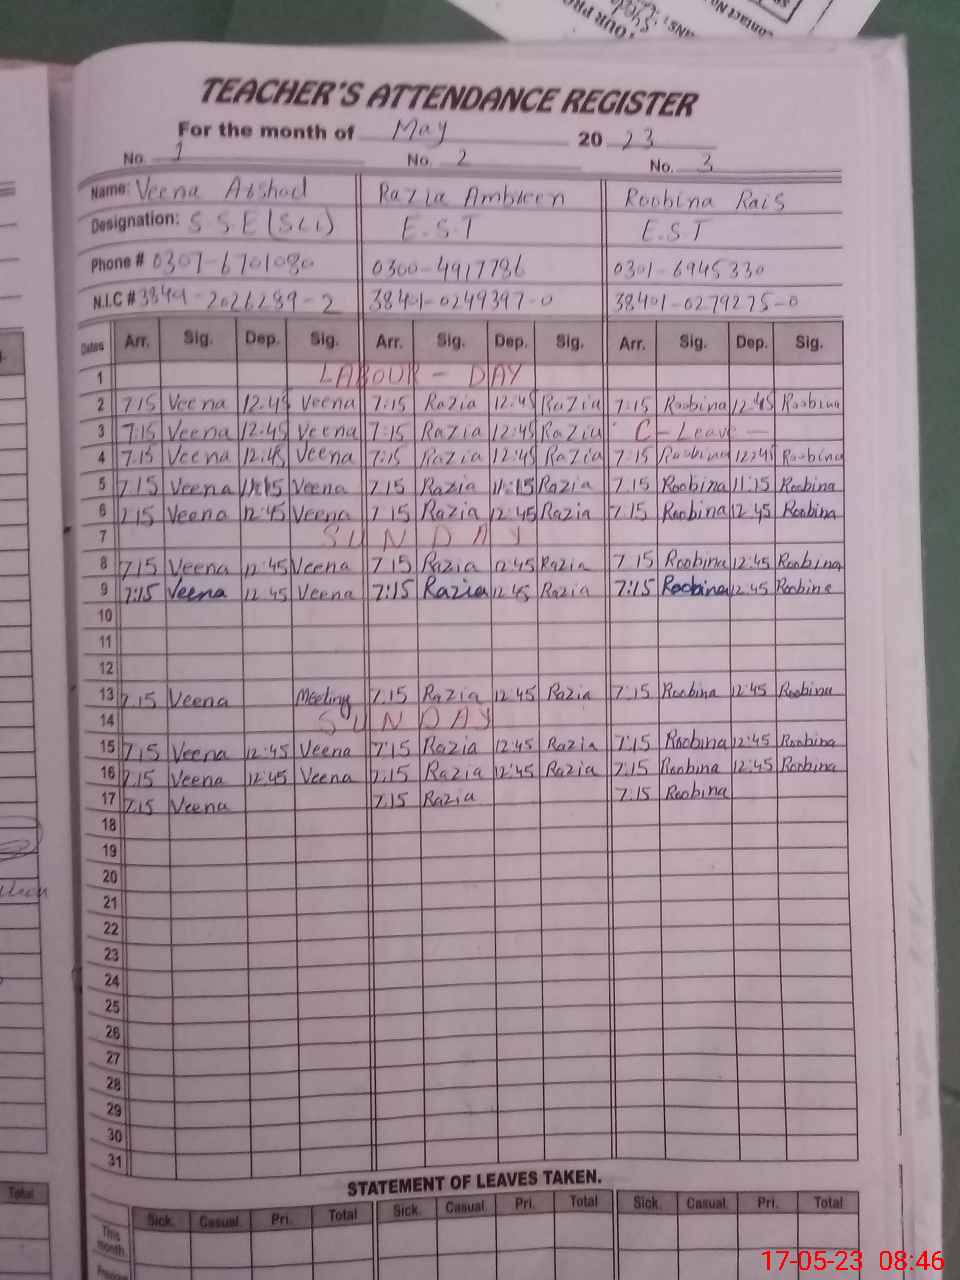 TEACHER'S ATTENDANCE REGISTER
For the month of May 20 23
No. 1 No. 2 No. 3
Name: Veena Arshad Razia Ambreen Roobina Rais
Designation: S.S.E (Sci) E.S.T E.S.T
Phone # 0307-6701080 0300-4917786 0301-6945330
N.I.C # 38401-2026289-2 38401-0249397-0 38401-0279275-0
Dates Arr. Sig. Dep. Sig. Arr. Sig. Dep. Sig. Arr. Sig. Dep. Sig.
1 LABOUR - DAY
2 7:15 Veena 12:45 Veena 7:15 Razia 12:45 Razia 7:15 Roobina 12:45 Roobina
3 7:15 Veena 12:45 Veena 7:15 Razia 12:45 Razia C - Leave -
4 7:15 Veena 12:45 Veena 7:15 Razia 12:45 Razia 7:15 Roobina 12:45 Roobina
5 7.15 Veena 11:15 Veena 7.15 Razia 11:15 Razia 7.15 Roobina 11:15 Roobina
6 7.15 Veena 12:45 Veena 7.15 Razia 12:45 Razia 7.15 Roobina 12:45 Roobina
7 SUNDAY
8 7.15 Veena 12:45 Veena 7.15 Razia 12:45 Razia 7.15 Roobina 12:45 Roobina
9 7:15 Veena 12:45 Veena 7:15 Razia 12:45 Razia 7:15 Roobina 12:45 Roobina
10
11
12
13 7.15 Veena Meeting 7.15 Razia 12:45 Razia 7:15 Roobina 12:45 Roobina
14 SUNDAY
15 7.15 Veena 12:45 Veena 7:15 Razia 12:45 Razia 7:15 Roobina 12:45 Roobina
16 7.15 Veena 12:45 Veena 7:15 Razia 12:45 Razia 7:15 Roobina 12:45 Roobina
17 7.15 Veena 7.15 Razia 7.15 Roobina
18
19
20
21
22
23
24
25
26
27
28
29
30
31
STATEMENT OF LEAVES TAKEN.
Sick. Casual. Pri. Total Sick. Casual. Pri. Total Sick. Casual. Pri. Total
This month.
Total
17-05-23 08:46